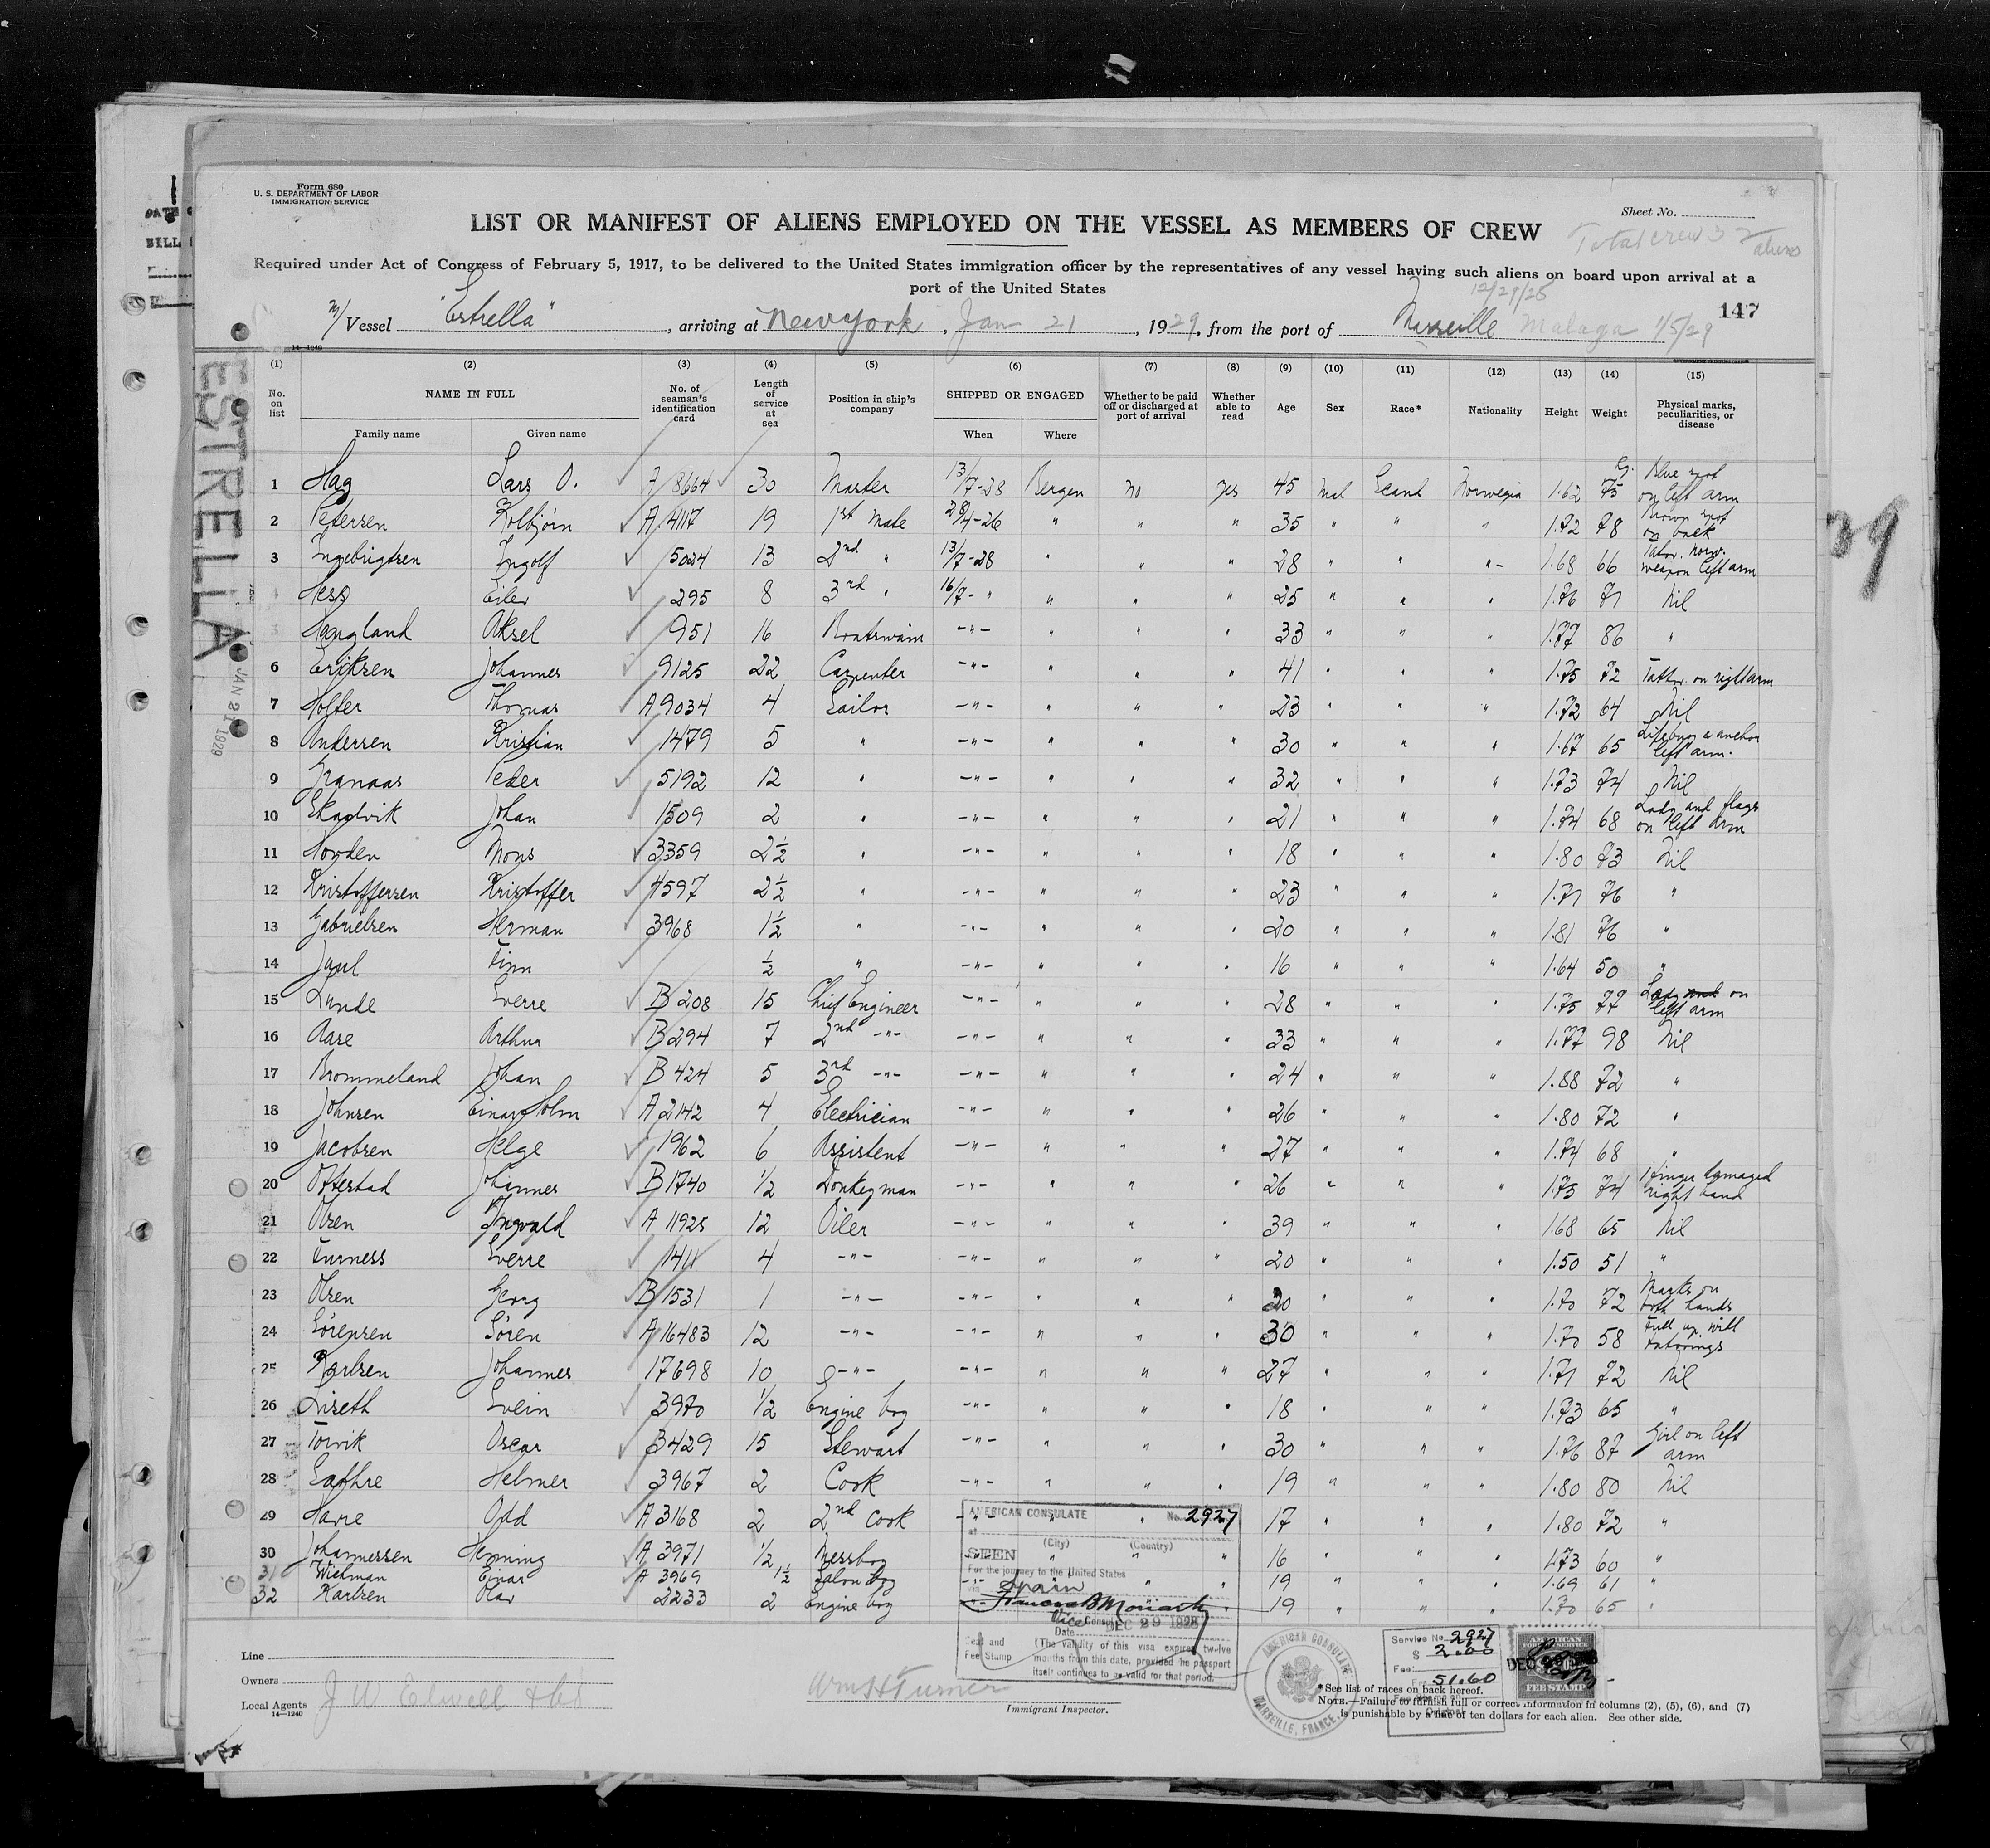 Form 680
U. S. DEPARTMENT OF LABOR
IMMIGRATION SERVICE
Sheet No.
LIST OR MANIFEST OF ALIENS EMPLOYED ON THE VESSEL AS MEMBERS OF CREW
Total crew 32 aliens
Required under Act of Congress of February 5, 1917, to be delivered to the United States immigration officer by the representatives of any vessel having such aliens on board upon arrival at a
port of the United States
12/29/28
147
M/ Vessel "Estrella", arriving at New York, Jan 21, 1929, from the port of Marseille Malaga 1/5/29
14—1240
ESTRELLA
JAN 21 1929
39
(1) (2) (3) (4) (5) (6) (7) (8) (9) (10) (11) (12) (13) (14) (15)
No. on list NAME IN FULL No. of seaman's identification card Length of service at sea Position in ship's company SHIPPED OR ENGAGED Whether to be paid off or discharged at port of arrival Whether able to read Age Sex Race* Nationality Height Weight Physical marks, peculiarities, or disease
Family name Given name When Where
1 Hag Lars O. A 8664 30 Master 13/7-28 Bergen no yes 45 Mal Scand Norwegia 1.62 Kg. 75 Blue spot on left arm
2 Petersen Kolbjörn A 4117 19 1st Mate 28/4-26 " " " 35 " " " 1.72 78 Brown spot on back
3 Ingebrigtsen Ingolf 5034 13 2nd " 13/7-28 " " " 28 " " " 1.68 66 Tatov. Norw. weapon left arm
4 Hess Eiler 295 8 3rd " 16/7- " " " " 25 " " " 1.76 71 Nil
5 Haugland Aksel 951 16 Boatswain -"- " " " 33 " " " 1.77 86 "
6 Eriksen Johannes 9125 22 Carpenter -"- " " " 41 " " " 1.75 72 Tattov. on right arm
7 Holter Thomas A 9034 4 Sailor -"- " " " 23 " " " 1.72 64 Nil
8 Andersen Kristian 1479 5 " -"- " " " 30 " " " 1.67 65 Lifebuoy & anchor left arm.
9 Granaas Peder 5192 12 " -"- " " " 32 " " " 1.73 74 Nil
10 Skagvik Johan 1509 2 " -"- " " " 21 " " " 1.74 68 Lady and flags on left arm
11 Howden Mons 3359 2½ " -"- " " " 18 " " " 1.80 73 Nil
12 Kristoffersen Kristoffer 4597 2½ " -"- " " " 23 " " " 1.71 76 "
13 Gabrielsen Herman 3968 1½ " -"- " " " 20 " " " 1.81 76 "
14 Juul Finn ½ " -"- " " " 16 " " " 1.64 50 "
15 Lunde Sverre B 208 15 Chief Engineer -"- " " " 28 " " " 1.75 77 Lady and on left arm
16 Aase Arthur B 294 7 2nd -"- -"- " " " 33 " " " 1.77 98 Nil
17 Brommeland Johan B 424 5 3rd -"- -"- " " " 24 " " " 1.88 72 "
18 Johnsen Einar Holm A 2142 4 Electrician -"- " " " 26 " " " 1.80 72 "
19 Jacobsen Helge 1962 6 Assistent -"- " " " 27 " " " 1.74 68 "
20 Ofterstad Johannes B 1740 ½ Donkeyman -"- " " " 26 " " " 1.75 74 1 finger damaged right hand
21 Olsen Ingvald A 11925 12 Oiler -"- " " " 39 " " " 1.68 65 Nil
22 Furness Sverre 1411 4 -"- -"- " " " 20 " " " 1.50 51 "
23 Olsen Georg B 1531 1 -"- -"- " " " 20 " " " 1.70 72 Marks on both hands
24 Sörensen Sören A 16483 12 -"- -"- " " " 30 " " " 1.70 58 Full up with tatovings
25 Karlsen Johannes 17698 10 -"- -"- " " " 27 " " " 1.71 72 Nil
26 Liseth Svein 3970 ½ Engine boy -"- " " " 18 " " " 1.73 65 "
27 Torvik Oscar 3429 15 Stewart -"- " " " 30 " " " 1.76 87 Girl on left arm
28 Sathre Helmer 3967 2 Cook -"- " " " 19 " " " 1.80 80 Nil
29 Havre Odd A 3168 2 2nd Cook -"- " " " 17 " " " 1.80 72 "
30 Johannessen Henning A 3971 ½ Messboy -"- " " " 16 " " " 1.73 60 "
31 Wickman Einar A 3969 1½ Salon boy -"- " " " 19 " " " 1.69 61 "
32 Karlsen Olav 2233 2 Engine boy -"- " 19 " " " 1.70 65 "
AMERICAN CONSULATE No. 2927
at
(City) (Country)
SEEN
For the journey to the United States
via Spain
Francis B Moriarty
Vice Consul
Date DEC 29 1928
Seal and Fee Stamp
(The validity of this visa expires twelve months from this date, provided he passport itself continues to be valid for that period.
AMERICAN CONSULATE
MARSEILLE, FRANCE.
Service No. 2927
$ 2.00
Fee
51.60
Original
AMERICAN
FOREIGN SERVICE
DEC 29 1928
FEE STAMP
Line
Owners
Local Agents J W Elwell & Co
14—1240
Wm H Turner
Immigrant Inspector.
*See list of races on back hereof.
NOTE.—Failure to furnish full or correct information in columns (2), (5), (6), and (7)
is punishable by a fine of ten dollars for each alien. See other side.